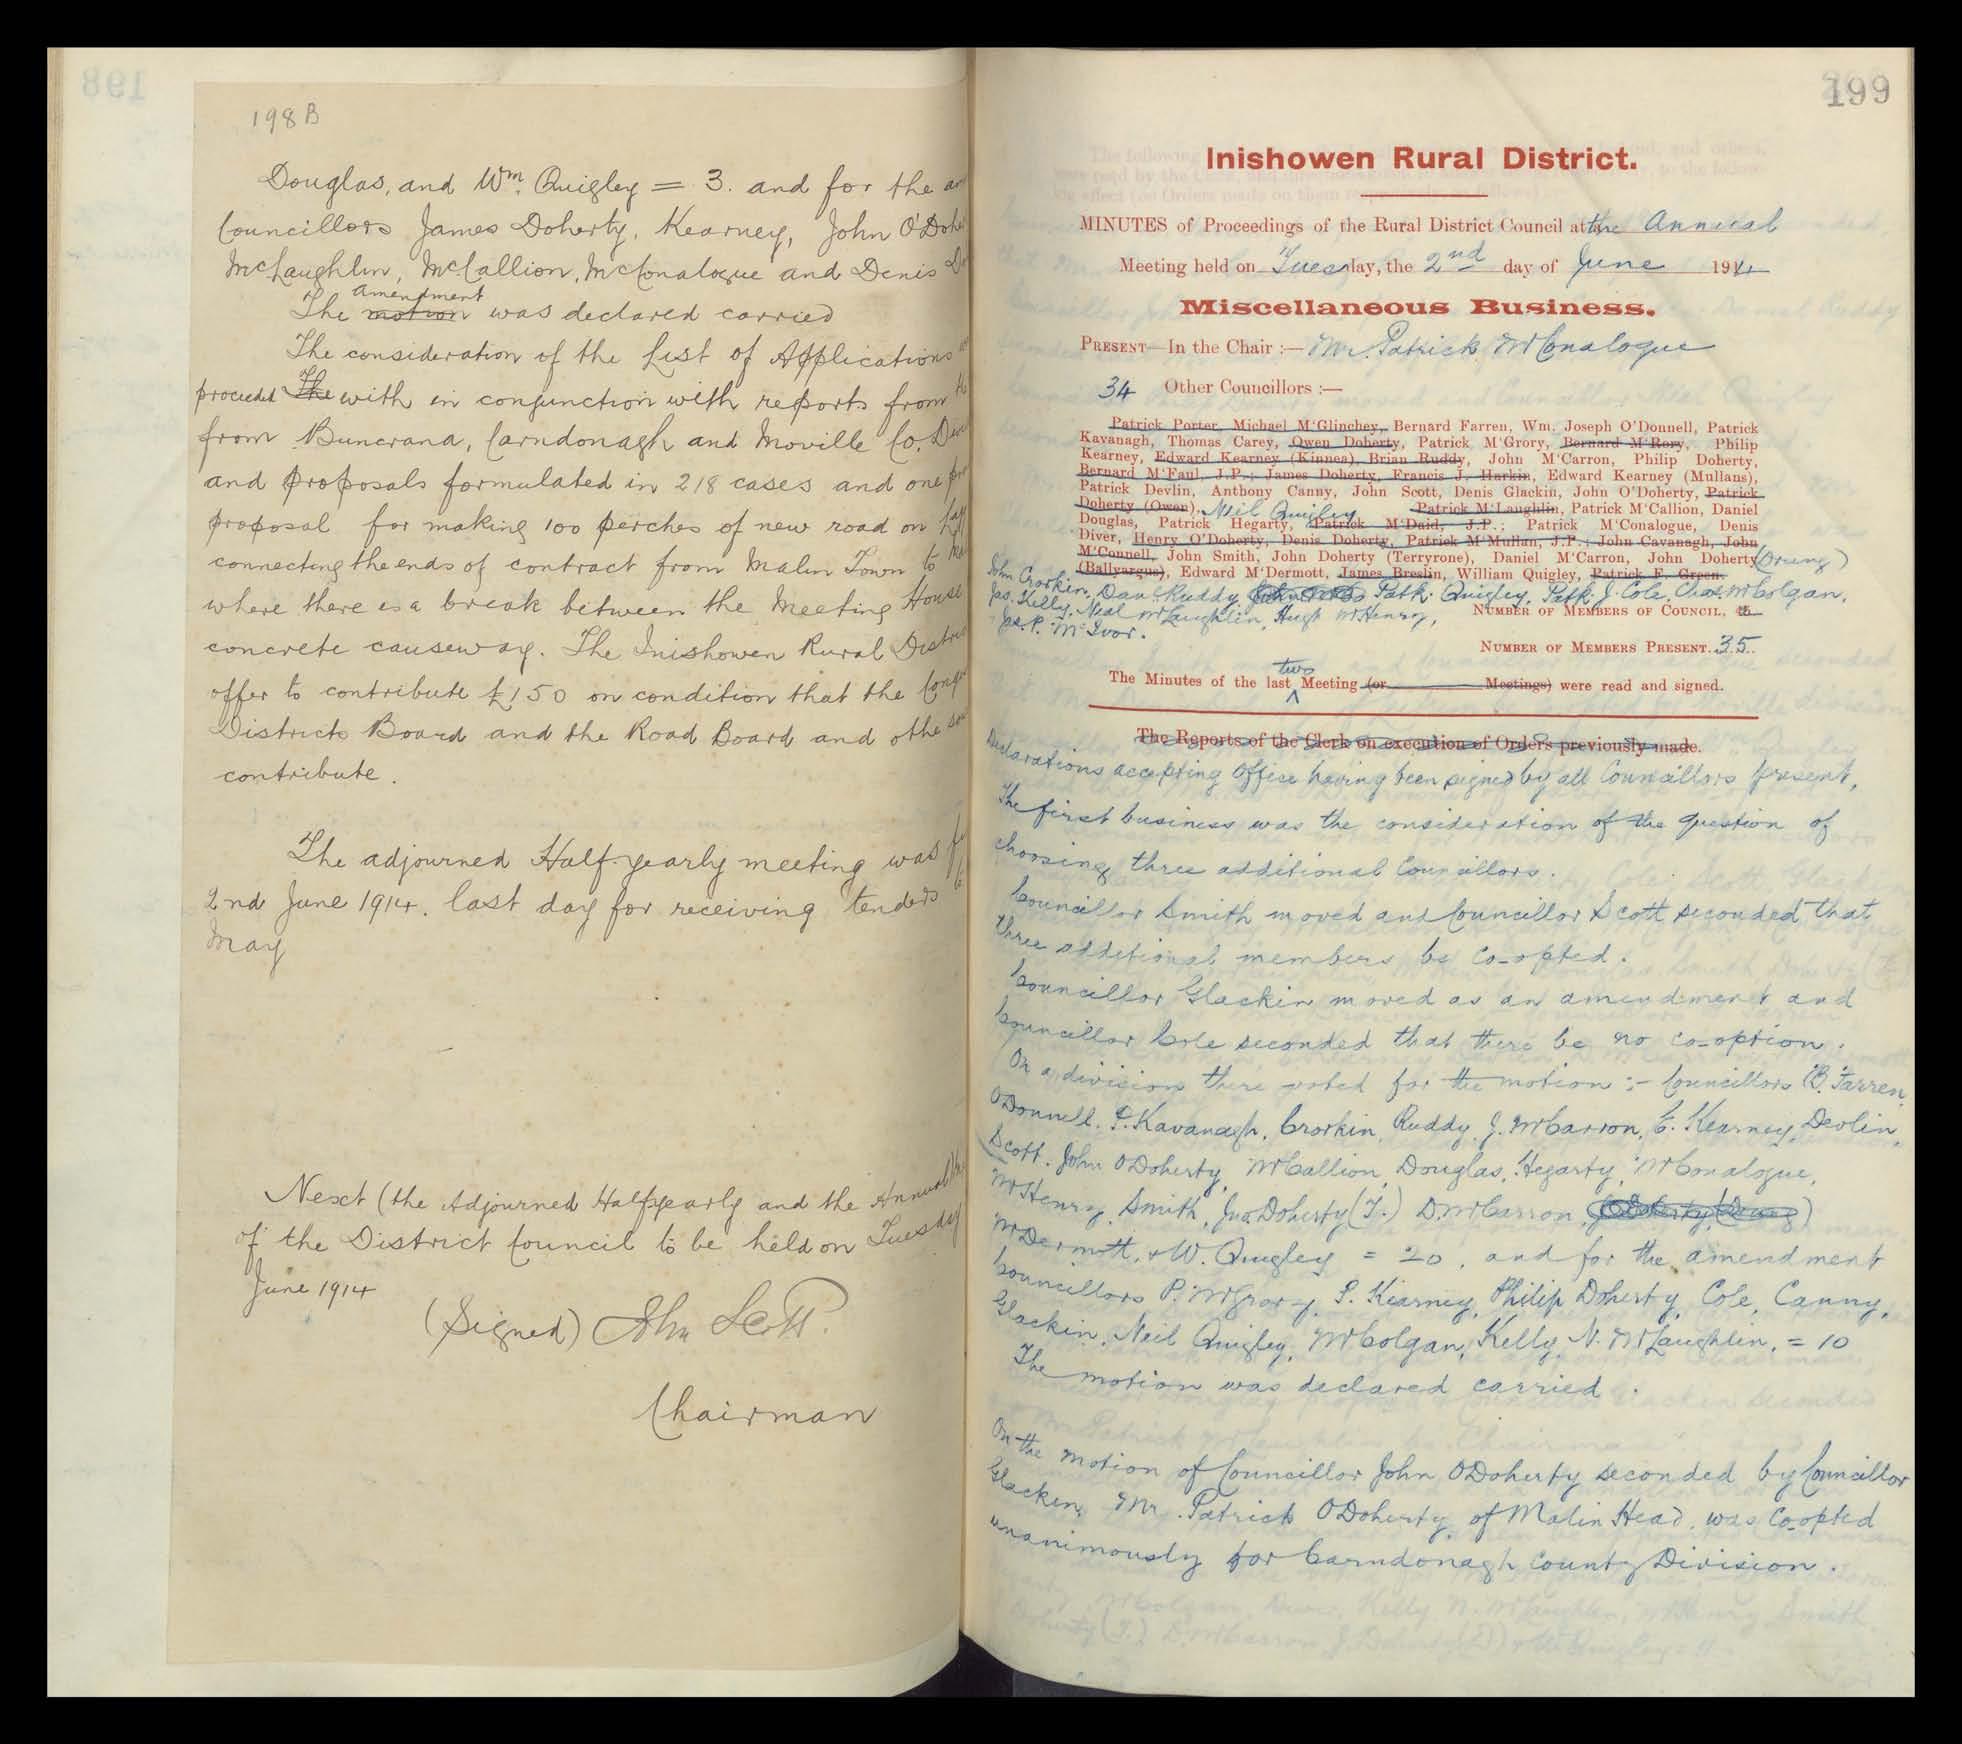 198
198 B
Douglas, and Wm. Quigley = 3. and for the
Councillors James Doherty, Kearney, John O'Dohe
McLaughlin, McCallion, McConalogue and Denis
amendment
The motion was declared carried
The consideration of the List of Applications
proceeded The with in conjunction with reports from
from Buncrana, Carndonagh and Moville Co.
and proposals formulated in 218 cases and one
proposal for making 100 perches of new road on
connecting the ends of contract from Malin Town to
where there is a break between the Meeting House
concrete causeway. The Inishowen Rural Distric
offer to contribute £150 on condition that the Conge
Districts Board and the Road Board and othe
contribute.
The adjourned Half-yearly meeting was
2nd June 1914. last day for receiving tenders
May
Next (the Adjourned Halfyearly and the Annual
of the District Council to be held on Tuesday
June 1914
(Signed) John Scott.
Chairman
199
Inishowen Rural District.
MINUTES of Proceedings of the Rural District Council at the Annual
Meeting held on Tuesday, the 2nd day of June 1914
Miscellaneous Business.
PRESENT—In the Chair :— Mr. Patrick McConalogue
34 Other Councillors :—
Patrick Porter, Michael M'Glinchey, Bernard Farren, Wm. Joseph O'Donnell, Patrick
Kavanagh, Thomas Carey, Owen Doherty, Patrick M'Grory, Bernard M'Rory, Philip
Kearney, Edward Kearney (Kinnea), Brian Ruddy, John M'Carron, Philip Doherty,
Bernard M'Faul, J.P.; James Doherty, Francis J. Harkin, Edward Kearney (Mullans),
Patrick Devlin, Anthony Canny, John Scott, Denis Glackin, John O'Doherty, Patrick
Doherty (Owen), Neil Quigley Patrick M'Laughlin, Patrick M'Callion, Daniel
Douglas, Patrick Hegarty, Patrick M'Daid, J.P.; Patrick M'Conalogue, Denis
Diver, Henry O'Doherty, Denis Doherty, Patrick M'Mullan, J.P.; John Cavanagh, John
M'Connell, John Smith, John Doherty (Terryrone), Daniel M'Carron, John Doherty (Drung)
(Ballyargus), Edward M'Dermott, James Breslin, William Quigley, Patrick F. Green.
John Crorkin, Danl Ruddy Patk. Quigley, Patk. J. Cole, Chas. McColgan,
Jas. Kelly, Neal McLaughlin, Hugh McHenry,
NUMBER OF MEMBERS OF COUNCIL,
Jas. P. McIvor.
NUMBER OF MEMBERS PRESENT. 35
two
The Minutes of the last Meeting (or Meetings) were read and signed.
The Reports of the Clerk on execution of Orders previously made.
Declarations accepting Office having been signed by all Councillors present,
The first business was the consideration of the question of
choosing three additional Councillors.
Councillor Smith moved and Councillor Scott seconded that
three additional members be co-opted.
Councillor Glackin moved as an amendment and
Councillor Cole seconded that there be no co-option.
On a division there voted for the motion :- Councillors B. Farren,
O'Donnell, P. Kavanagh, Crorkin, Ruddy, J. McCarron, E. Kearney, Devlin,
Scott, John O'Doherty, McCallion, Douglas, Hegarty, McConalogue,
McHenry, Smith, Jno. Doherty (T.) D. McCarron, J Doherty (Drung)
McDermott, & W. Quigley = 20, and for the amendment
Councillors P. McGrory, P. Kearney, Philip Doherty, Cole, Canny,
Glackin, Neil Quigley, McColgan, Kelly, N. McLaughlin, = 10
The motion was declared carried.
On the motion of Councillor John O'Doherty seconded by Councillor
Glacken, Mr. Patrick O'Doherty, of Malin Head, was Co-opted
unanimously for Carndonagh County Division.